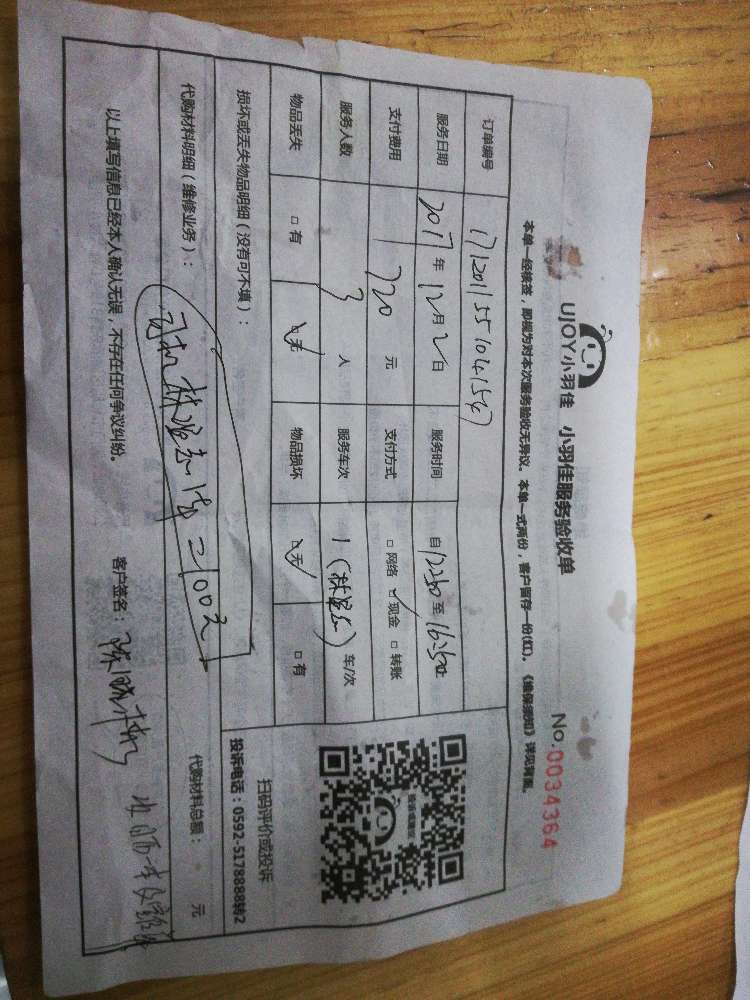 UJOY小羽佳 小羽佳服务验收单
No.0034364
本单一经核签，即视为对本次服务验收无异议。本单一式两份，客户留存一份(红)。《维保须知》详见背面。
订单编号
服务日期 2017年12月2日 服务时间 自1250至1650止
支付费用 720元 支付方式 □网络 ☑现金 □转账
服务人数 3人 服务车次 1 车/次
物品丢失 □有 ☑无 物品损坏 ☑无 □有
损坏或丢失物品明细（没有可不填）：
扫码评价或投诉
投诉电话：0592-5178888转2
代购材料明细（维修业务）：
司机 = 100元
代购材料总额： 元
以上填写信息已经本人确认无误，不存在任何争议纠纷。 客户签名：